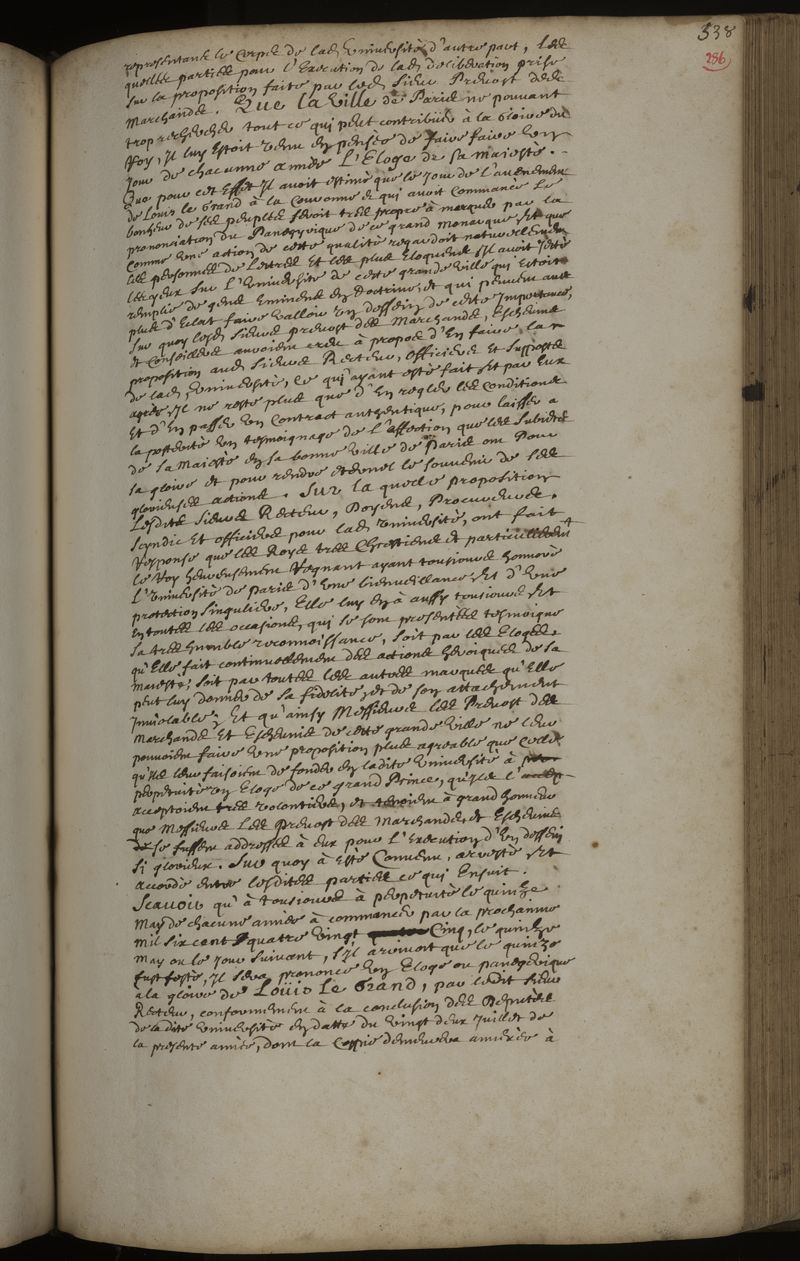 338
286
representant le Corps de lad. Université d'autre part, Les
quelles parties pour l'Execution de lad. deliberation prise
sur la proposition faite par led. Sieur Prevost des
Marchands. Que la Ville de Paris ne pouvant
trop rechercher tout ce qui peut contribuer à la gloire du
Roy, Il luy estoit venu en pensée de faire faire un
jour de chacunne année L'Eloge de sa majesté.
Que pour cet effet Il avoit estimé que le jour de l'avenement
de Louis le Grand à la Couronne et qui avoit commancé Le
bonheur de ses peuples seroit tres propre à marquer par la
prononciation du Panegyrique de ce grand monarque Et que
Comme une action de cette qualité regardoit naturellement
les personnes de Lettres Et les plus Eloquens Il avoit jetté
les yeux sur L'Université de cette grande Ville qui Estoit
remplie de gens Eminens en doctrine, et qui peuvent avec
plus d'Eclat faire valloir un dessein de cette Importance,
sur quoy lesd. Sieurs prevost des Marchands, Eschevins
et Conseillers auroient creu à propos d'En faire la
proposition aud. Sieurs Recteur, Officiers Et Supposts
de lad. Université, ce qui ayant esté fait Et par Eux
agréé Il ne reste plus que d'En regler les Conditions
Et d'En passer un Contract authentique, pour laisser a
la posterité un tesmoignage de L'affection que les Subiects
de sa Majesté en sa bonne Ville de Paris ont Pour
sa gloire et pour rendre eternel le souvenir de ses
glorieuses actions. Sur la quelle proposition
Lesdits Sieurs Recteur, Doyens, Procureurs,
Scyndic Et officiers pour lad. Université, ont fait
Response que les Roys tres Chrestiens et particulierement
le Roy heureusement Regnant ayant tousiours honnoré
L'Université de Paris d'Une bienveillance Et d'Une
protection singuliere, Elle luy en à aussy tousiours Et
En toutes les occasions, qui se sont presentées tesmoigné
sa tres humble reconnoissance, soit par les Eloges,
qu'Elle fait continuellement des actions heroiques de sa
majesté; soit par toutes les autres marques qu'Elle
peut luy donner de sa fidelité, et de son attachement
Inviolable; Et qu'ainsy Messieurs les Prevost des
Marchands Et Eschevins de cette grande Ville ne leur
pouvoient faire une proposition plus agreable que Celle
qu'ils leur faisoient de fonder en ladite Université à
perpetuité un Eloge de ce grand Prince, qu'ils l'
acceptoient tres volontiers, et tenoient à grand honneur
que Messieurs Les Prevost des Marchands et Eschevins
se fussent addressés à Eux pour L'Execution d'Un dessein
si glorieux. Sur quoy à Esté Convenu, arresté Et
accordé entre lesdites parties ce qui Ensuit.
Scavoir qu'à tousiours à perpetuité le quinze
May de chacune année à commancer par la prochainne
mil six cent quatre vingt Cinq, le quinze
May ou le jour suivant, s'Il arrivoit que le quinze
fust feste, Il sera prononcé un Eloge ou panegirique
à la gloire de Loüis Le Grand, par ledit Sieur
Recteur, conformement à la conclusion des Deputés
de la dite Université en datte du vingt deux Juillet de
la presente année, dont la Coppie demeurera annexée à